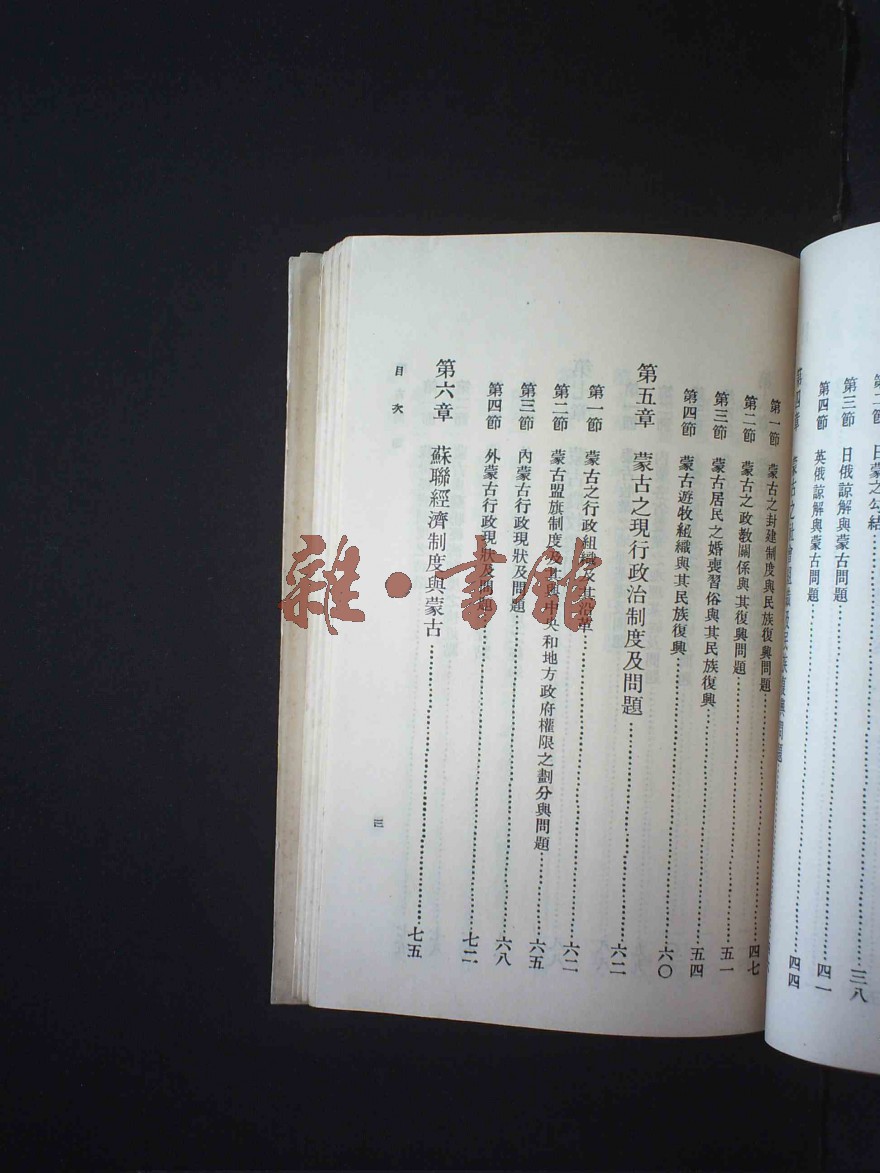 日蒙之勾結……三八
第三節 日俄諒解與蒙古問題……四一
第四節 英俄諒解與蒙古問題……四四
第四章 蒙古之社會組織 民族復興問題
第一節 蒙古之封建制度與民族復興問題……四七
第二節 蒙古之政教關係與其復興問題……五一
第三節 蒙古居民之婚喪習俗與其民族復興……五四
第四節 蒙古遊牧組織與其民族復興……六〇
第五章 蒙古之現行政治制度及問題……六二
第一節 蒙古之行政組織及其沿革……六二
第二節 蒙古盟旗制度及其與中央和地方政府權限之劃分與問題……六五
第三節 內蒙古行政現狀及問題……六八
第四節 外蒙古行政現狀及問題……七二
第六章 蘇聯經濟制度與蒙古……七五
目次
三
雜·書館